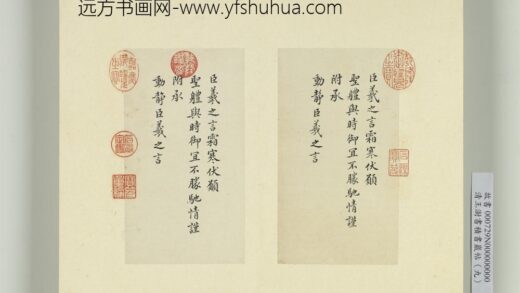 远方书画网-www.yfshuhua.com
臣羲之言霜寒伏願
聖體與時御宜不勝馳情謹
附承
動靜臣羲之言
臣羲之言霜寒伏願
聖體與時御宜不勝馳情謹
附承
動靜臣羲之言
故書 000729N000000000
清王澍書積書巖帖(九)